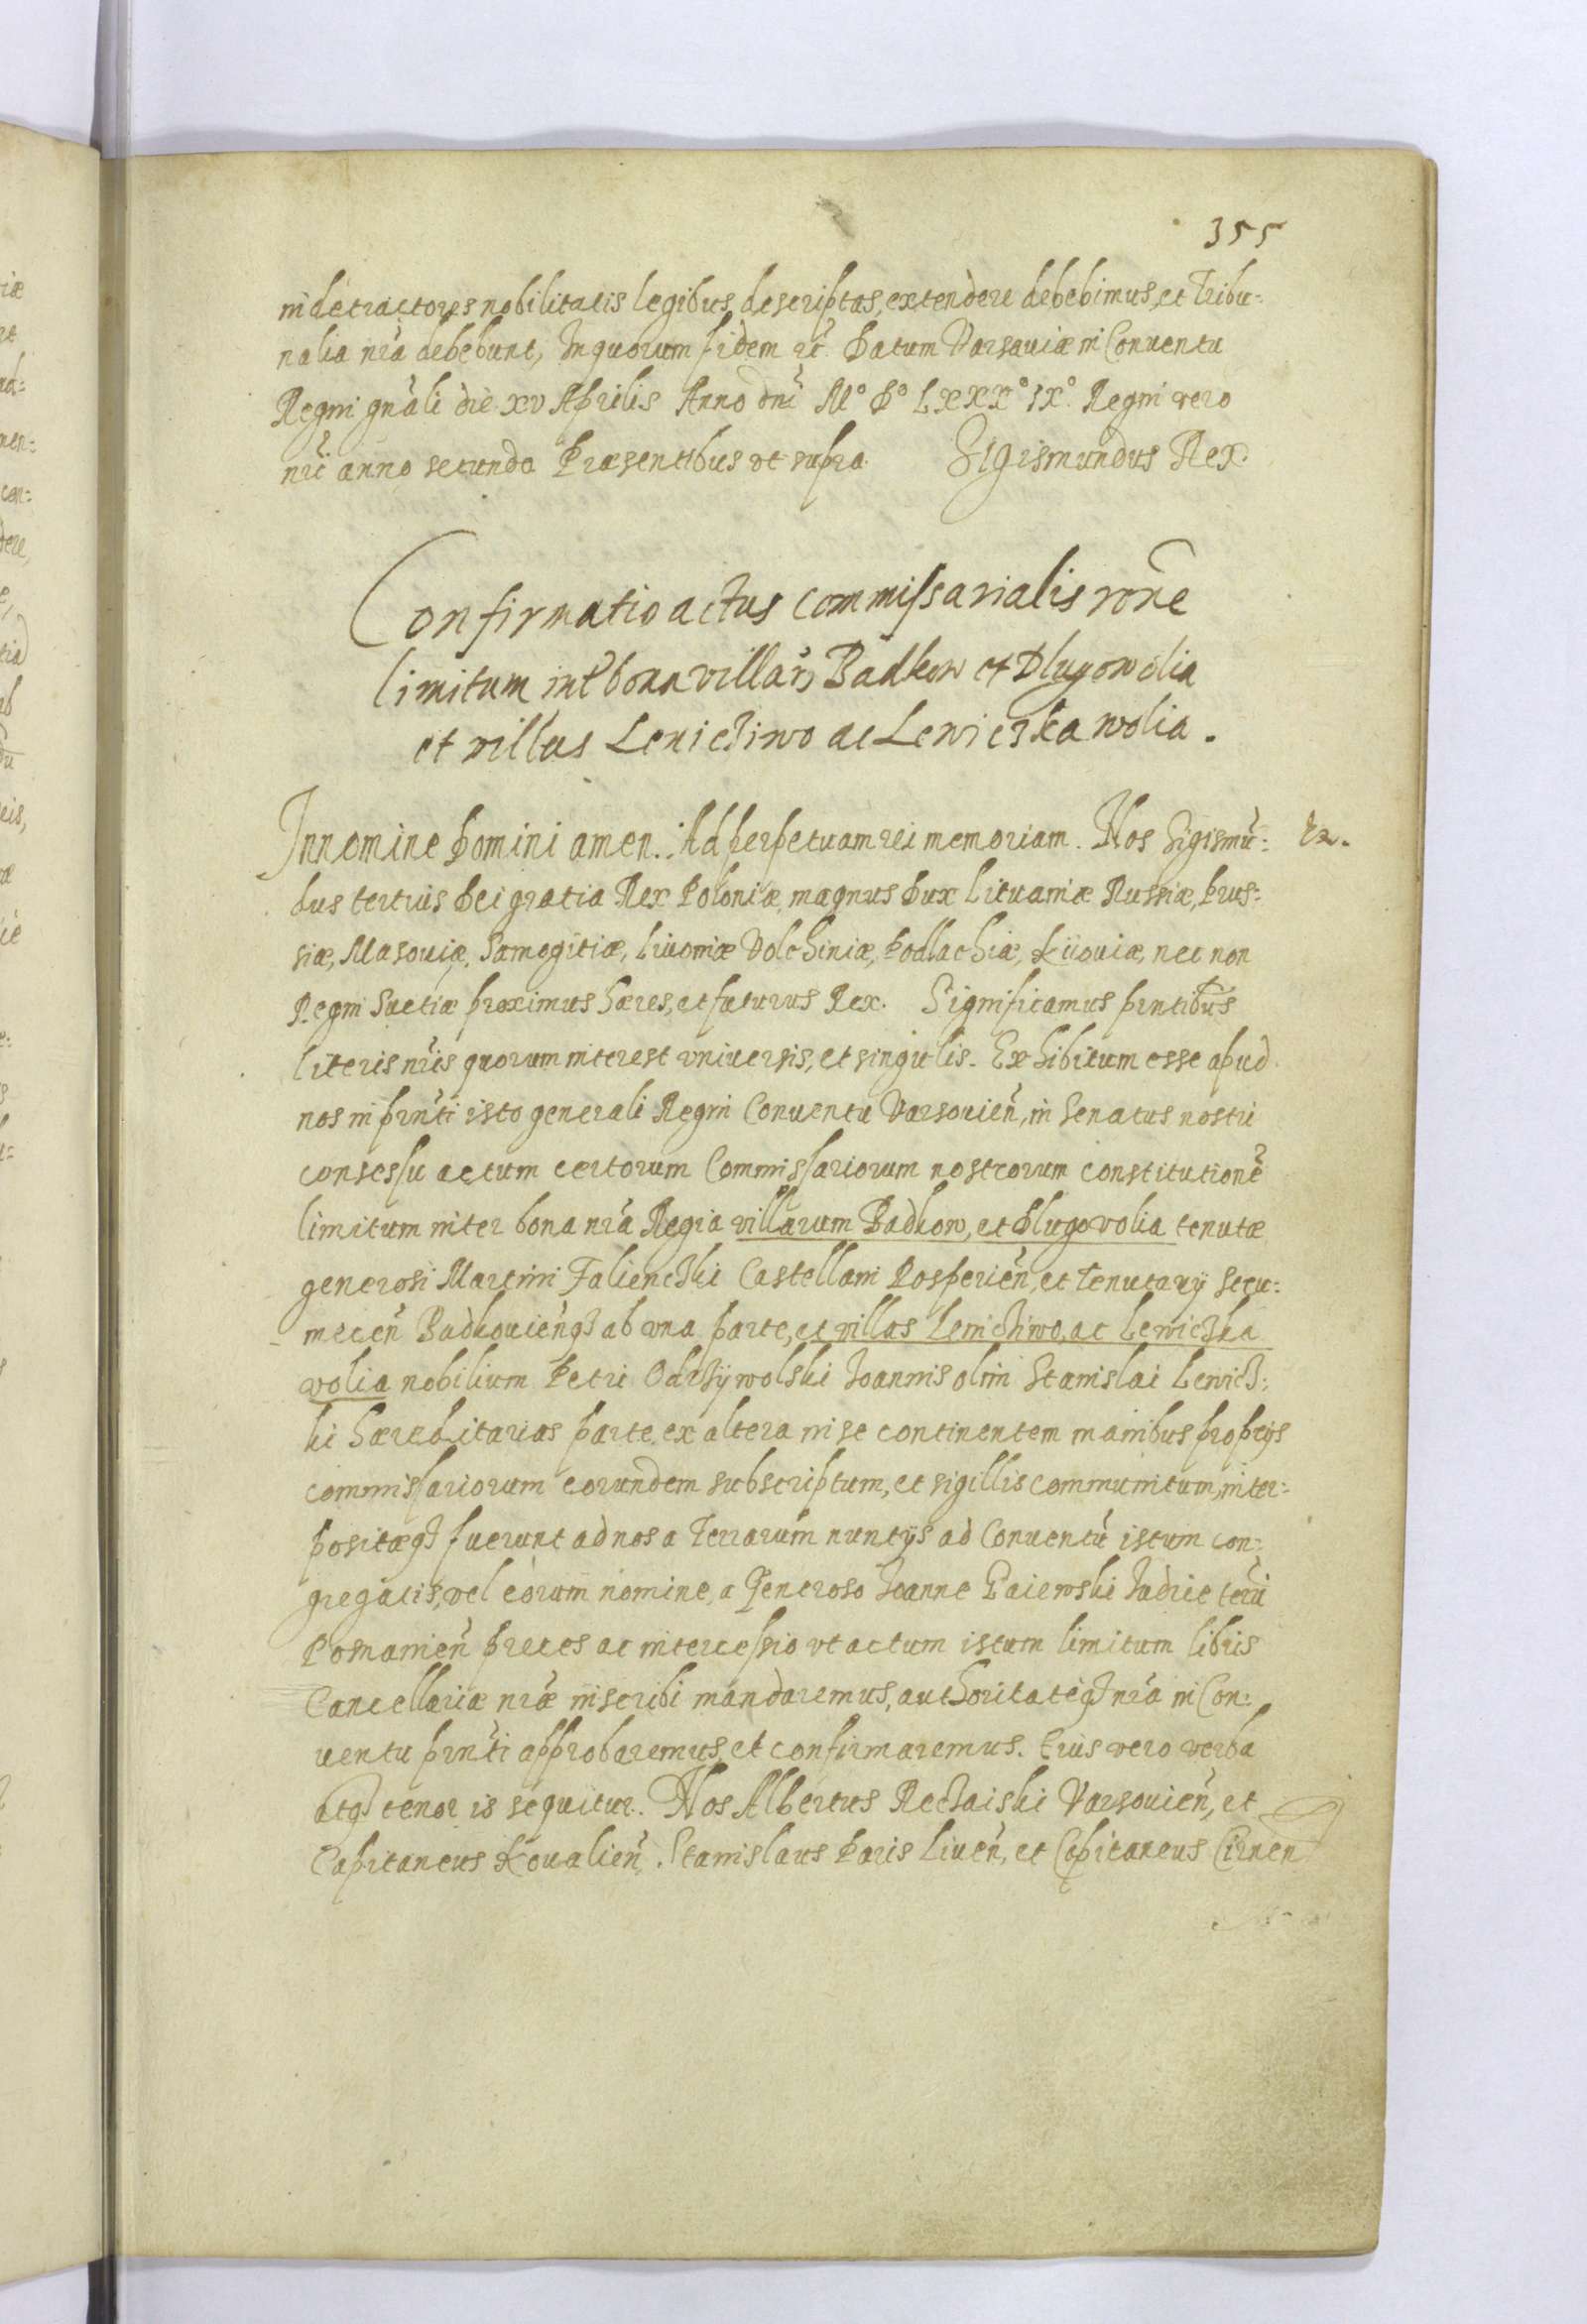 355
in detractores nobilitatis legibus descriptas, extendere debebimus, et Tribu:
nalia nr̃a debebunt, In quorum fidem rc̃. Datum Varsauiæ in Conuentu
Regni gñali die xv Aprilis Anno dnĩ Mº Dº LXXXº IXº. Regni vero
nrĩ anno secundo Præsentibus vt supra. Sigismundus Rex.
Confirmatio actus commissarialis rõne
limitum int̃ bona villar̃ Badkow et Dlugowolia
et villas Lenichiwo ac Lewiczka wolia.
In nomine Domini amen. Ad perpetuam rei memoriam. Nos Sigismũ:
dus tertius Dei gratia Rex Poloniæ, magnus Dux Lituaniæ Russiæ, Prus:
siæ, Masouiæ, Samogitiæ, Liuoniæ Volchiniæ, Podlachiæ, Kiiouiæ, nec non
Regni Suetiæ proximus hæres, et futurus Rex. Significamus prñtibus
literis nrĩs quorum interest vniuersis, et singulis. Exhibitum esse apud
nos in prñti isto generali Regni Conuentu Varsouieñ, in Senatus nostri
consessu actum certorum Commissariorum nostrorum constitutionẽ
limitum inter bona nr̃a Regia villarum Badkow, et Dlugovolia tenutæ
generosi Martini Falienczki Castellani Rosperieñ, et tenutarij Secu:
meceñ Badkouieñq3 ab vna parte, et villas Lenichiwo, ac Lewiczka
wolia nobilium Petri Odrzÿwolski Ioannis olim Stanislai Lewicz:
ki hæreditarias parte ex altera in se continentem manibus proprijs
commissariorum eorundem subscriptum, et sigillis communitum, inter:
positæq3 fuerunt ad nos a Terrarum nuntijs ad Conuentũ istum con:
gregatis, vel eorum nomine, a Generoso Ioanne Gaiewski Iudice terr̃i
Posnanieñ preces ac intercessio vt actum istum limitum libris
Cancellariæ nr̃æ inscribi mandaremus, authoritateq3 nr̃a in Con:
uentu prñti approbaremus, et confirmaremus. Eius vero verba
atq3 tenor is sequitur. Nos Albertus Reczaiski Varsouieñ, et
Capitaneus Koualieñ. Stanislaus Paris Liueñ, et Capitaneus Cirnen